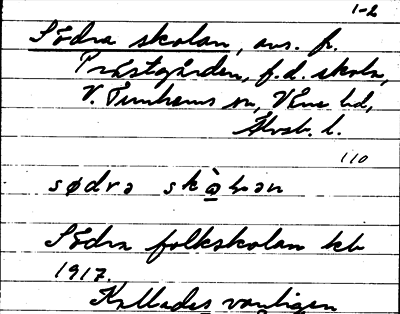 1-2
Södra skolan, avs. fr.
Prästgården, f.d. skola,
V. Tunhems sn, Väne hd,
Älvsb. l.
110
södra skola
Södra folkskolan kb
1917.
Kallades vanligen